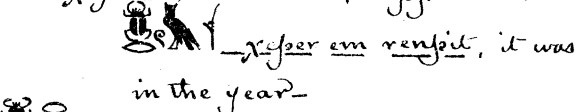 𓆣𓅓𓆳 — χeper em renpit, it was
in the year —